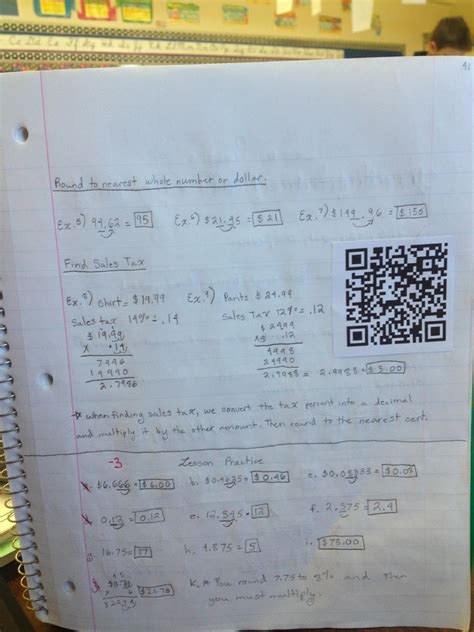 41
Round to nearest whole number or dollar.
Ex.5) 94.62 = 95 Ex.6) $21.45 = $21 Ex.7) $149.96 = $150
Find Sales Tax
Ex.8) Shirt = $19.99 Ex.9) Pants $24.99
Sales tax 14% = .14 Sales Tax 12% = .12
$19.99 $2499
x .14 x .12
7996 4998
19990 24990
2.7986 2.9988 = 2.9988 = $3.00
* when finding sales tax, we convert the tax percent into a decimal
and multiply it by the other amount. Then round to the nearest cent.
-3 Lesson Practice
$6.666 = $6.00 b. $0.4635 = $0.46 c. $0.08333 = $0.08
0.12 = 0.12 e. 12.345 = 12 f. 2.375 = 2.4
g. 16.75 = 17 h. 4.875 = 5 i. $73.00
k. 7.75 to 8% and then
you must multiply.